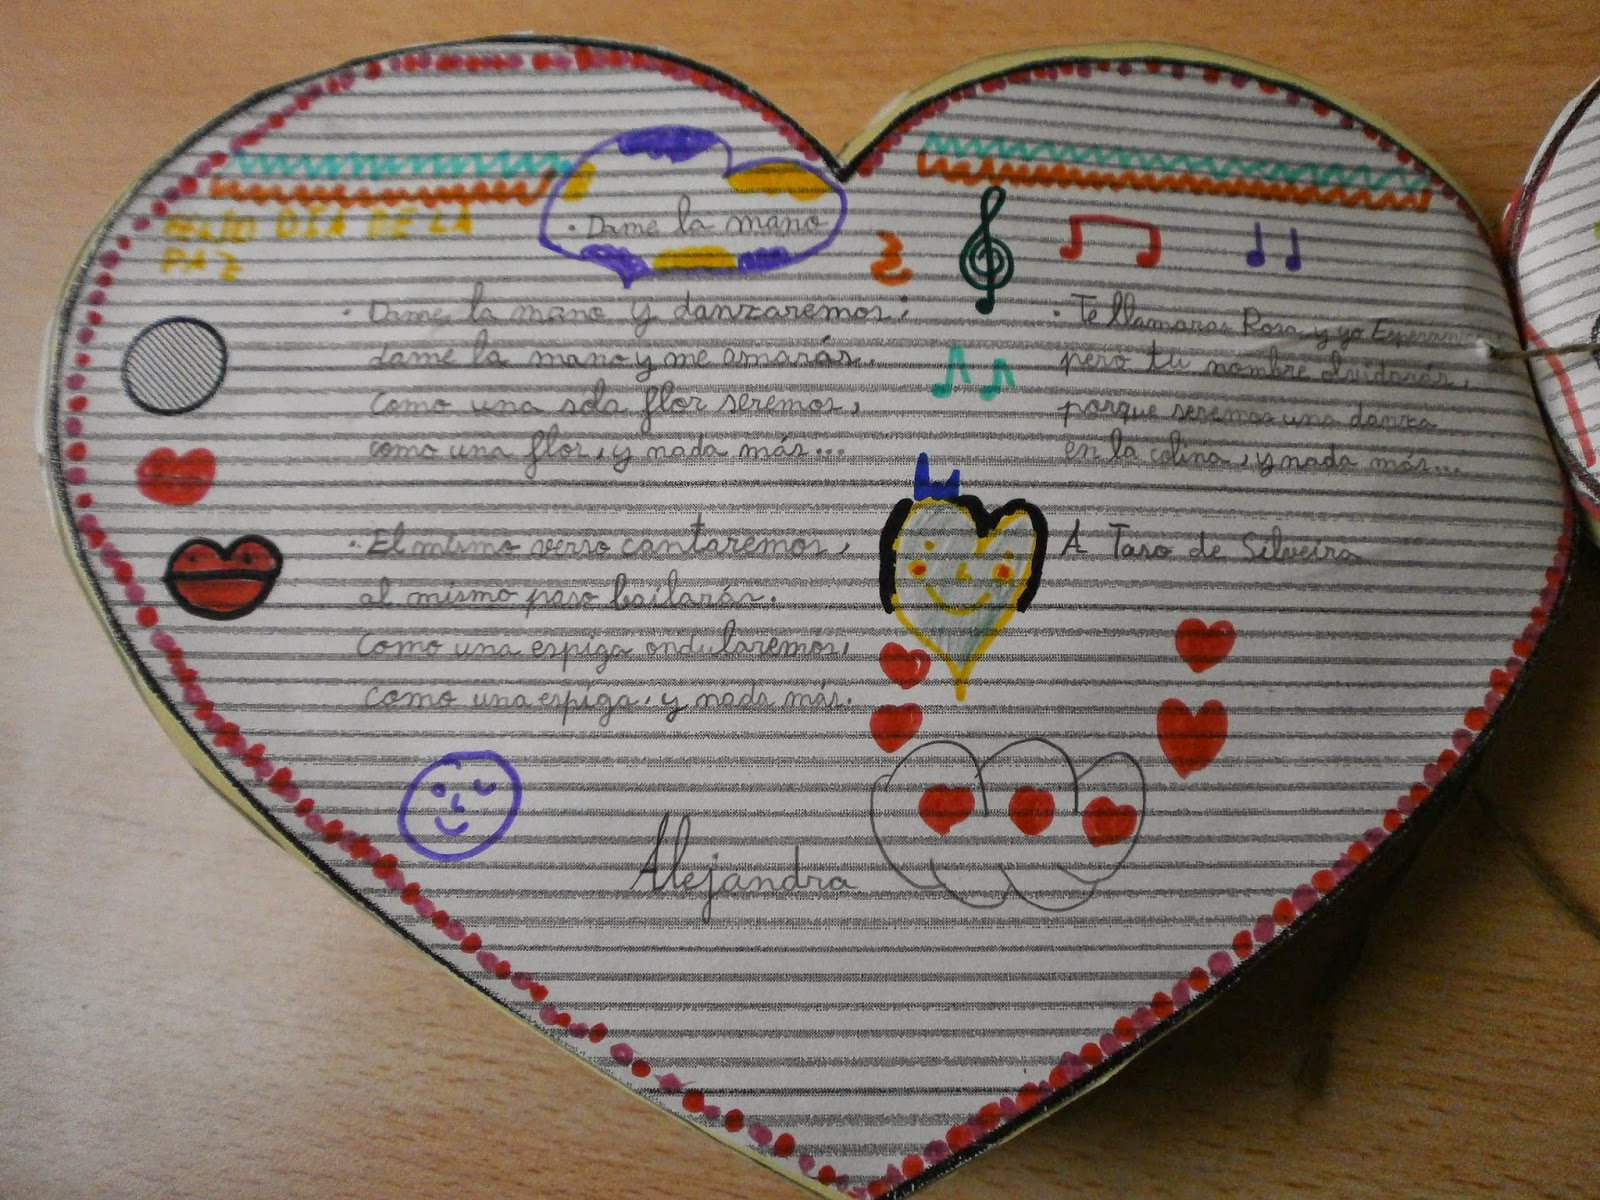 DÍA DE LA
PAZ
· Dame la mano
· Dame la mano y danzaremos;
dame la mano y me amarás.
Como una sola flor seremos,
como una flor, y nada más...
· El mismo verso cantaremos,
al mismo paso bailarás.
Como una espiga ondularemos,
como una espiga, y nada más.
· Te llamaras Rosa y yo
pero tu nombre olvidarás,
porque seremos una danza
en la colina, y nada más...
A Taso de Silveira
Alejandra